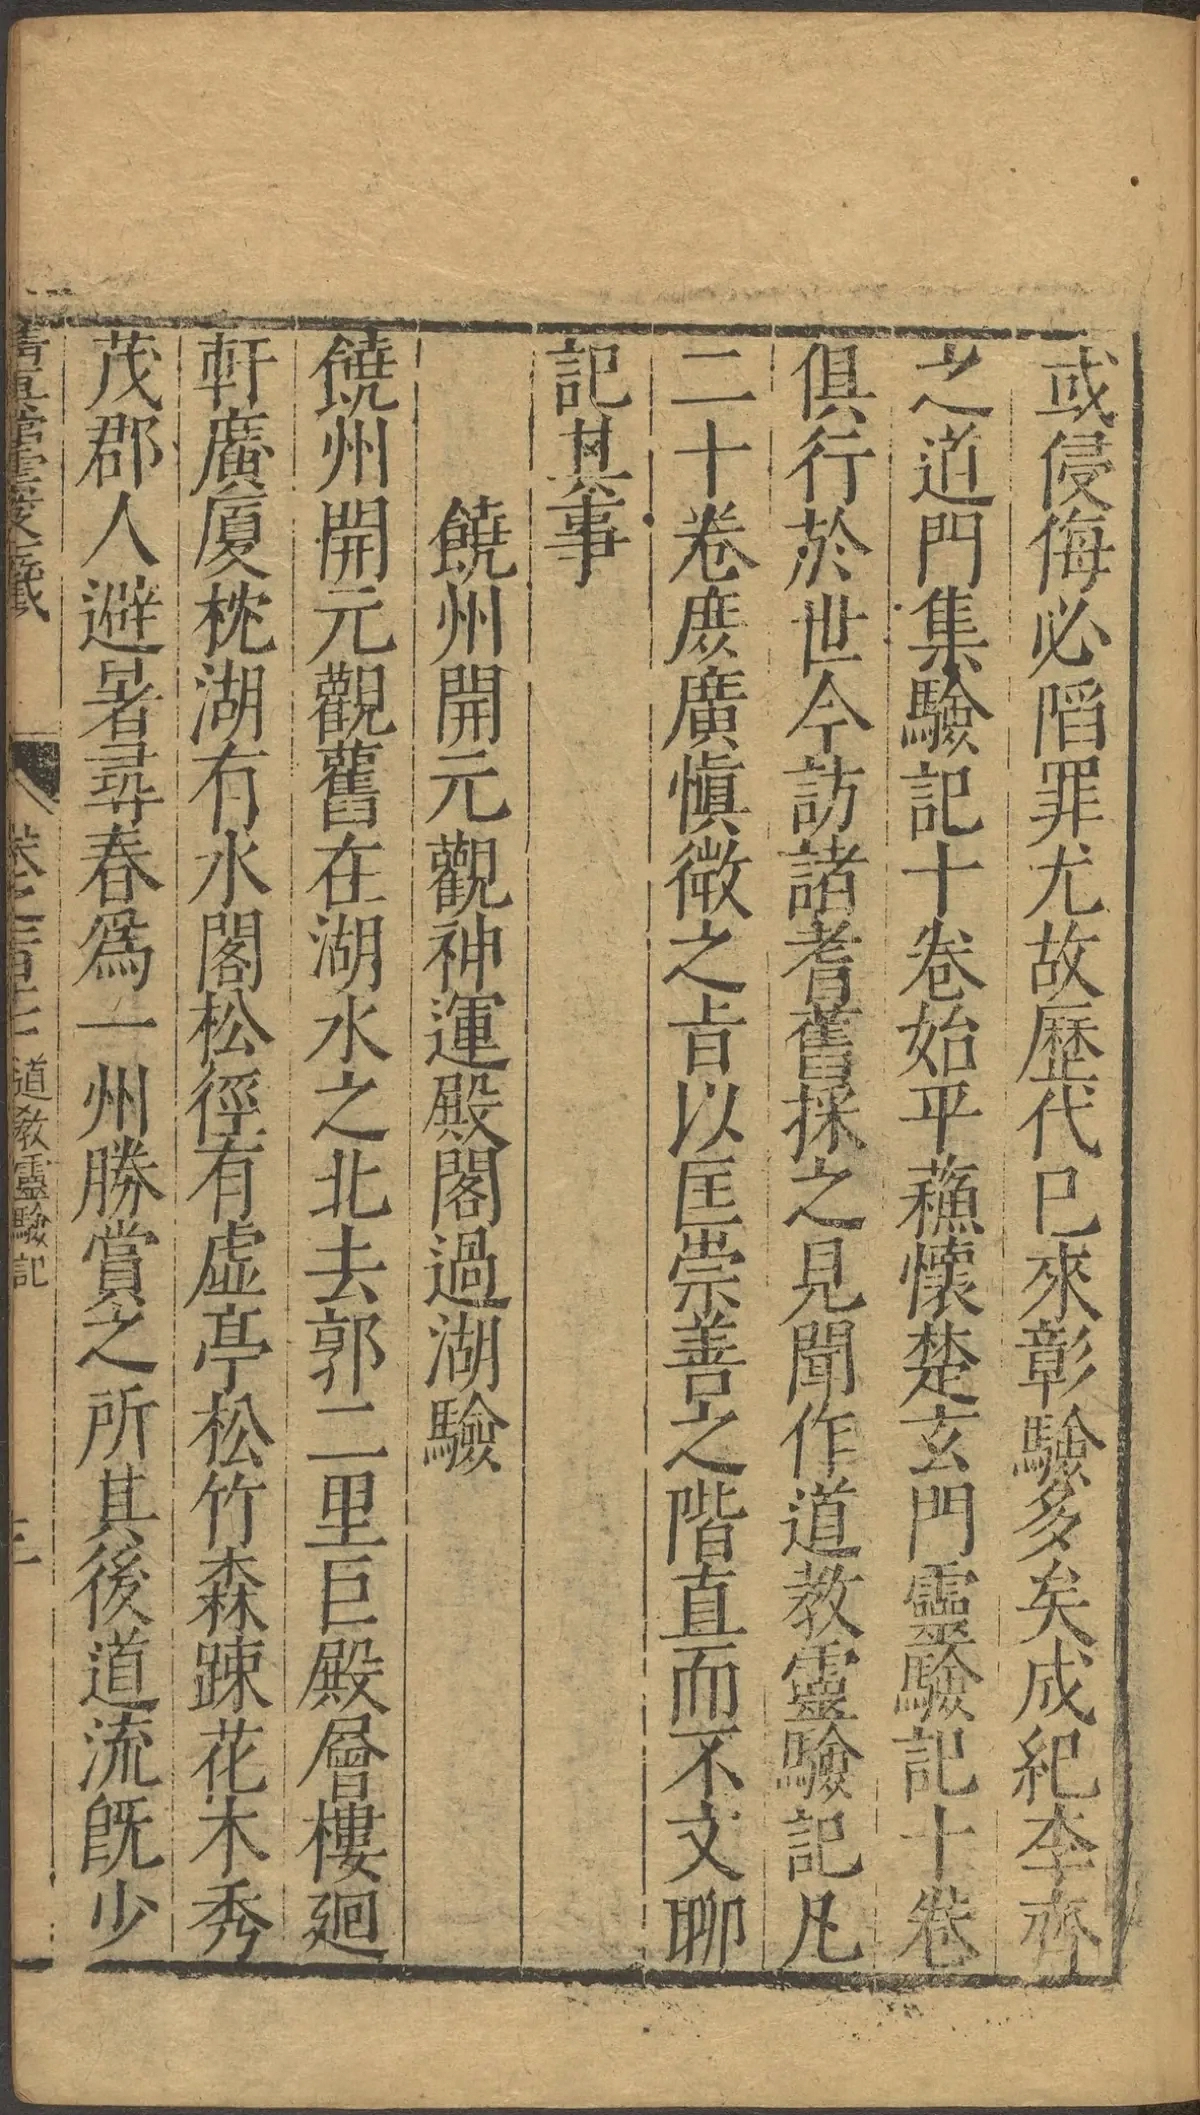 或侵侮必䧟罪尤故歷代已來彰驗多矣成紀李齊
之道門集驗記十卷始平蘓懷楚玄門靈驗記十卷
俱行於世今訪諸耆舊採之見聞作道教靈驗記凡
二十卷庻廣慎徵之㫖以匡崇善之階直而不文聊
記其事
饒州開元觀神運殿閣過湖驗
饒州開元觀舊在湖水之北去郭二里巨殿層樓廻
軒廣厦枕湖有水閣松徑有虛亭松竹森踈花木秀
茂郡人避暑尋春爲一州勝賞之所其後道流旣少
道教靈驗記